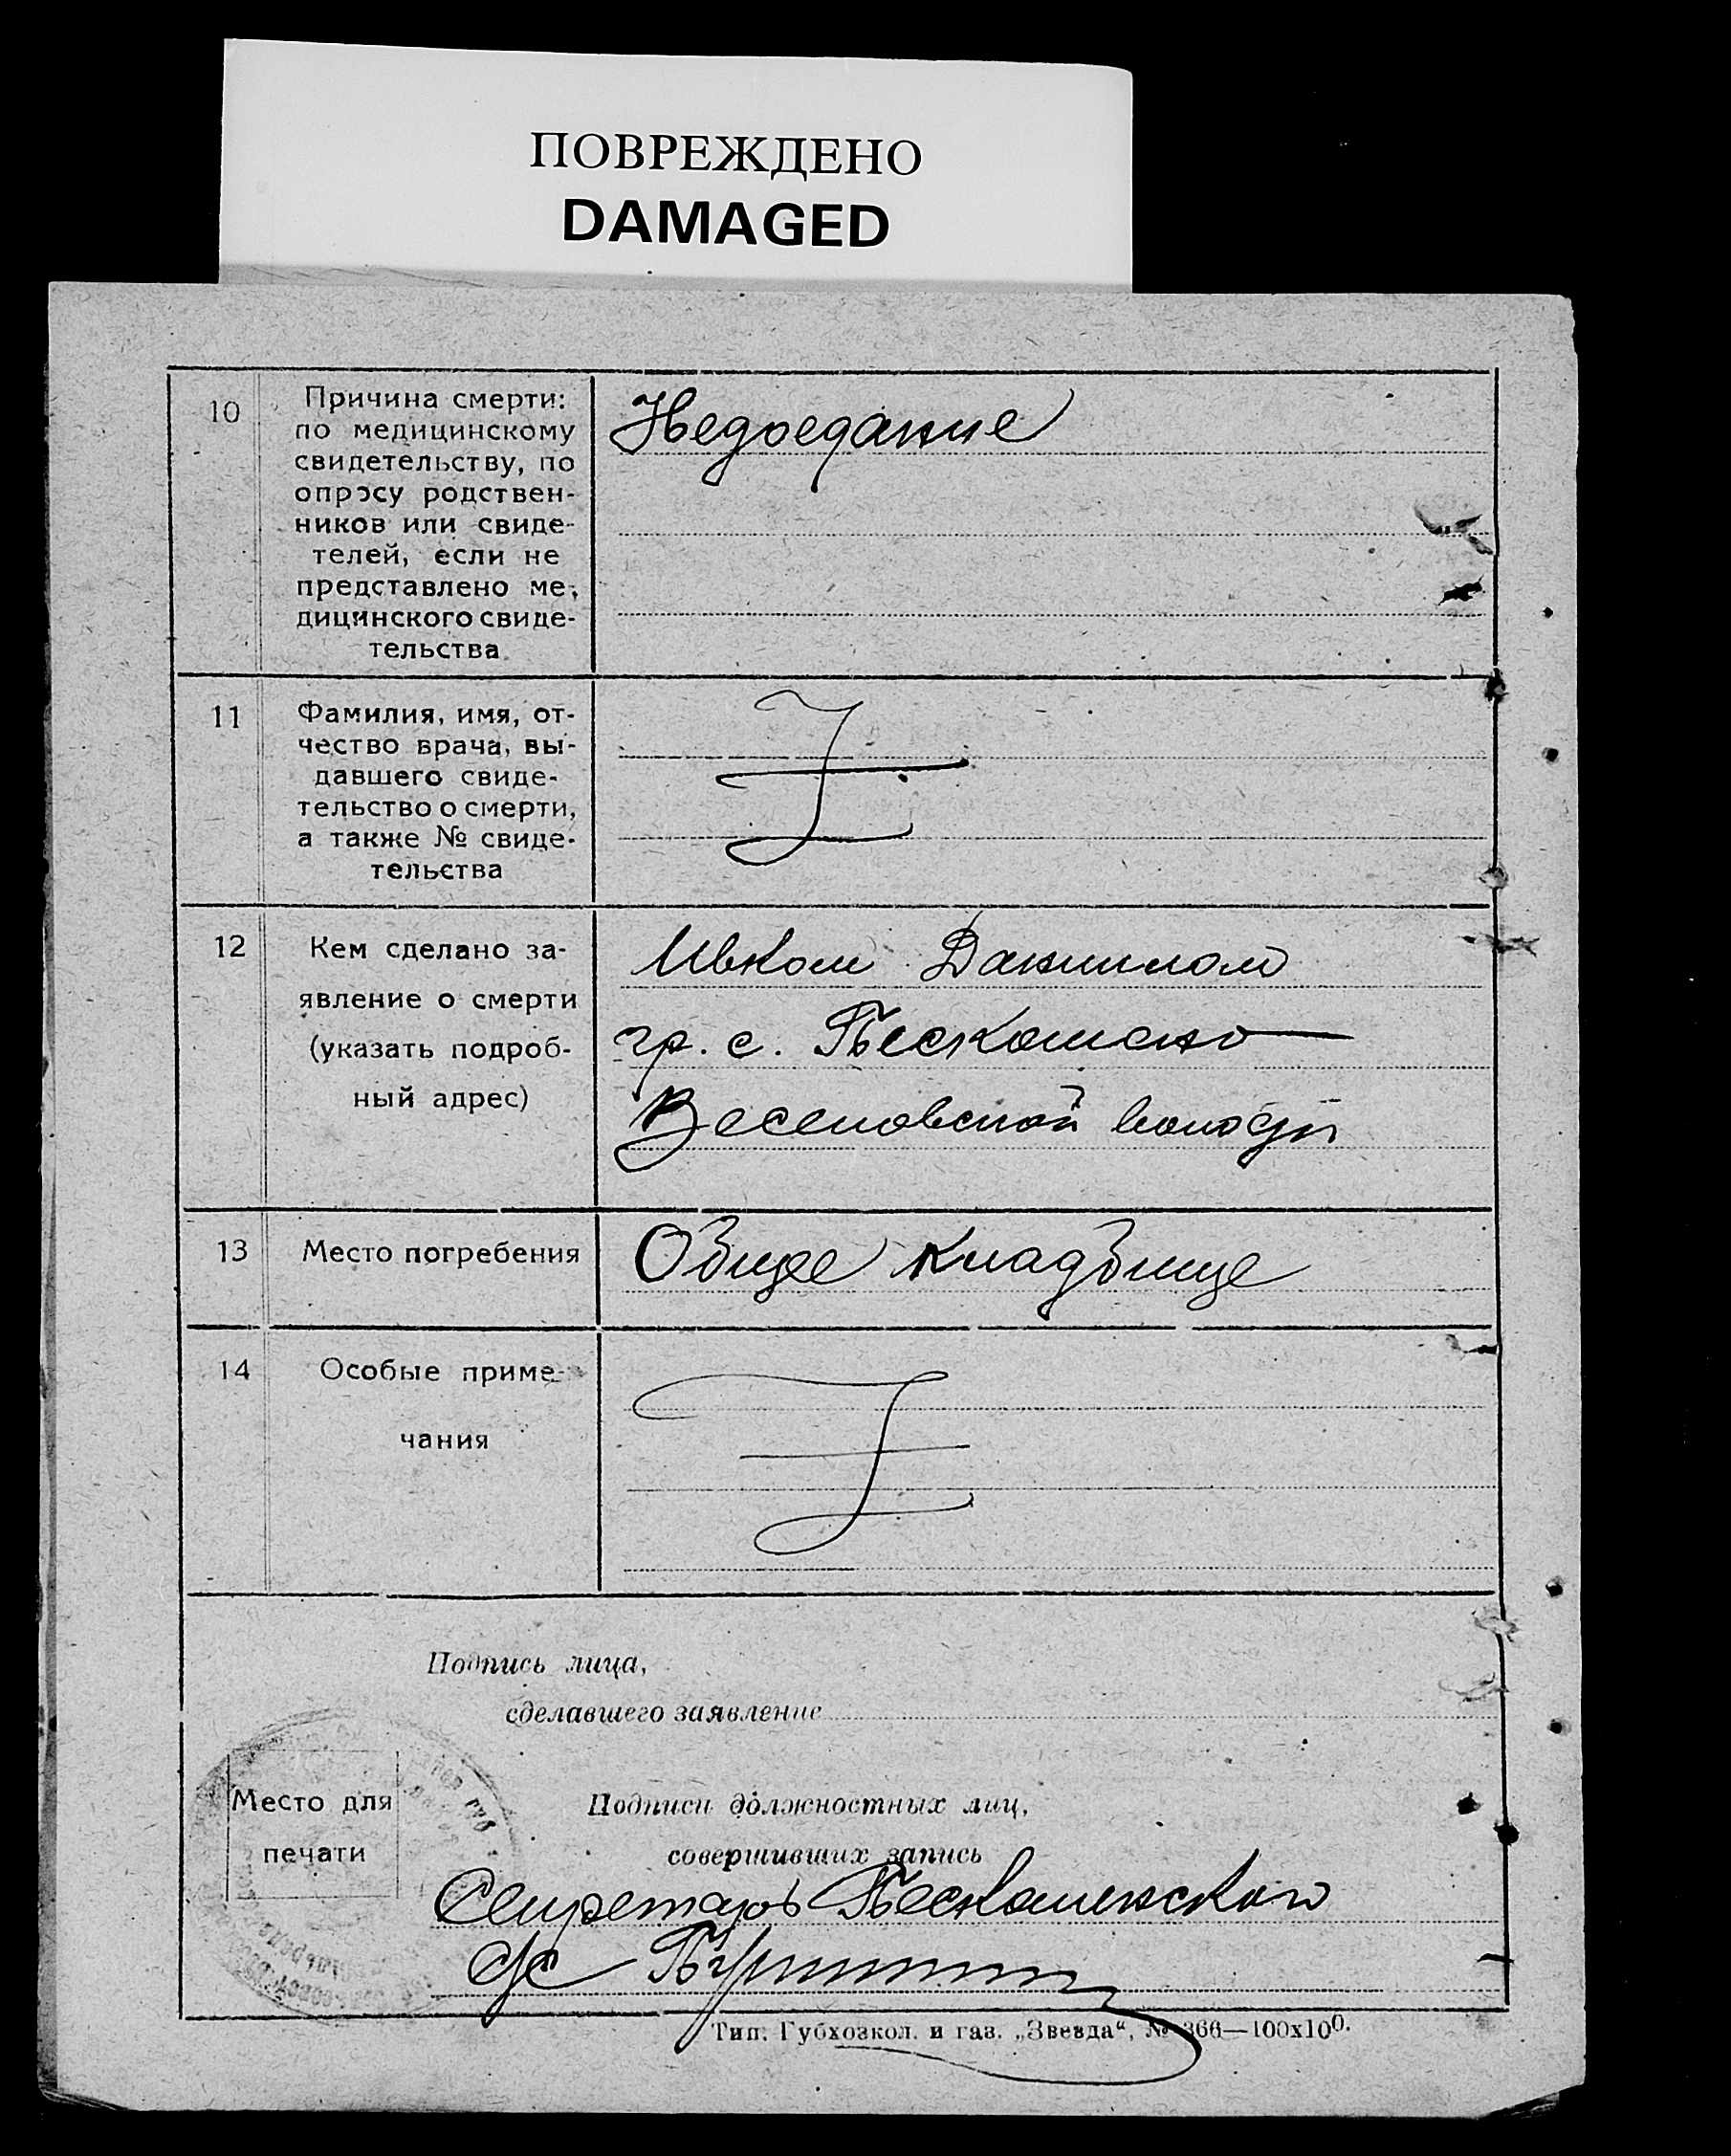 ПОВРЕЖДЕНО
DAMAGED
10
Причина смерти:
по медицинскому
свидетельству, по
опросу родствен-
ников или свиде-
телей, если не
представлено ме-
дицинского свиде-
тельства
Недоедание
11
Фамилия, имя, от-
чество врача, вы-
давшего свиде-
тельство о смерти,
а также № свиде-
тельства
12
Кем сделано за-
явление о смерти
(указать подроб-
ный адрес)
Ивком Данилом
гр. с.
Веселовской волости
13
Место погребения
Общее кладбище
14
Особые приме-
чания
Подпись лица,
сделавшего заявление
Место для
печати
Подписи должностных лиц,
совершивших запись
Секретарь
с/с
Тип. Губхозкол. и газ. „Звезда“, № 366—100х100.